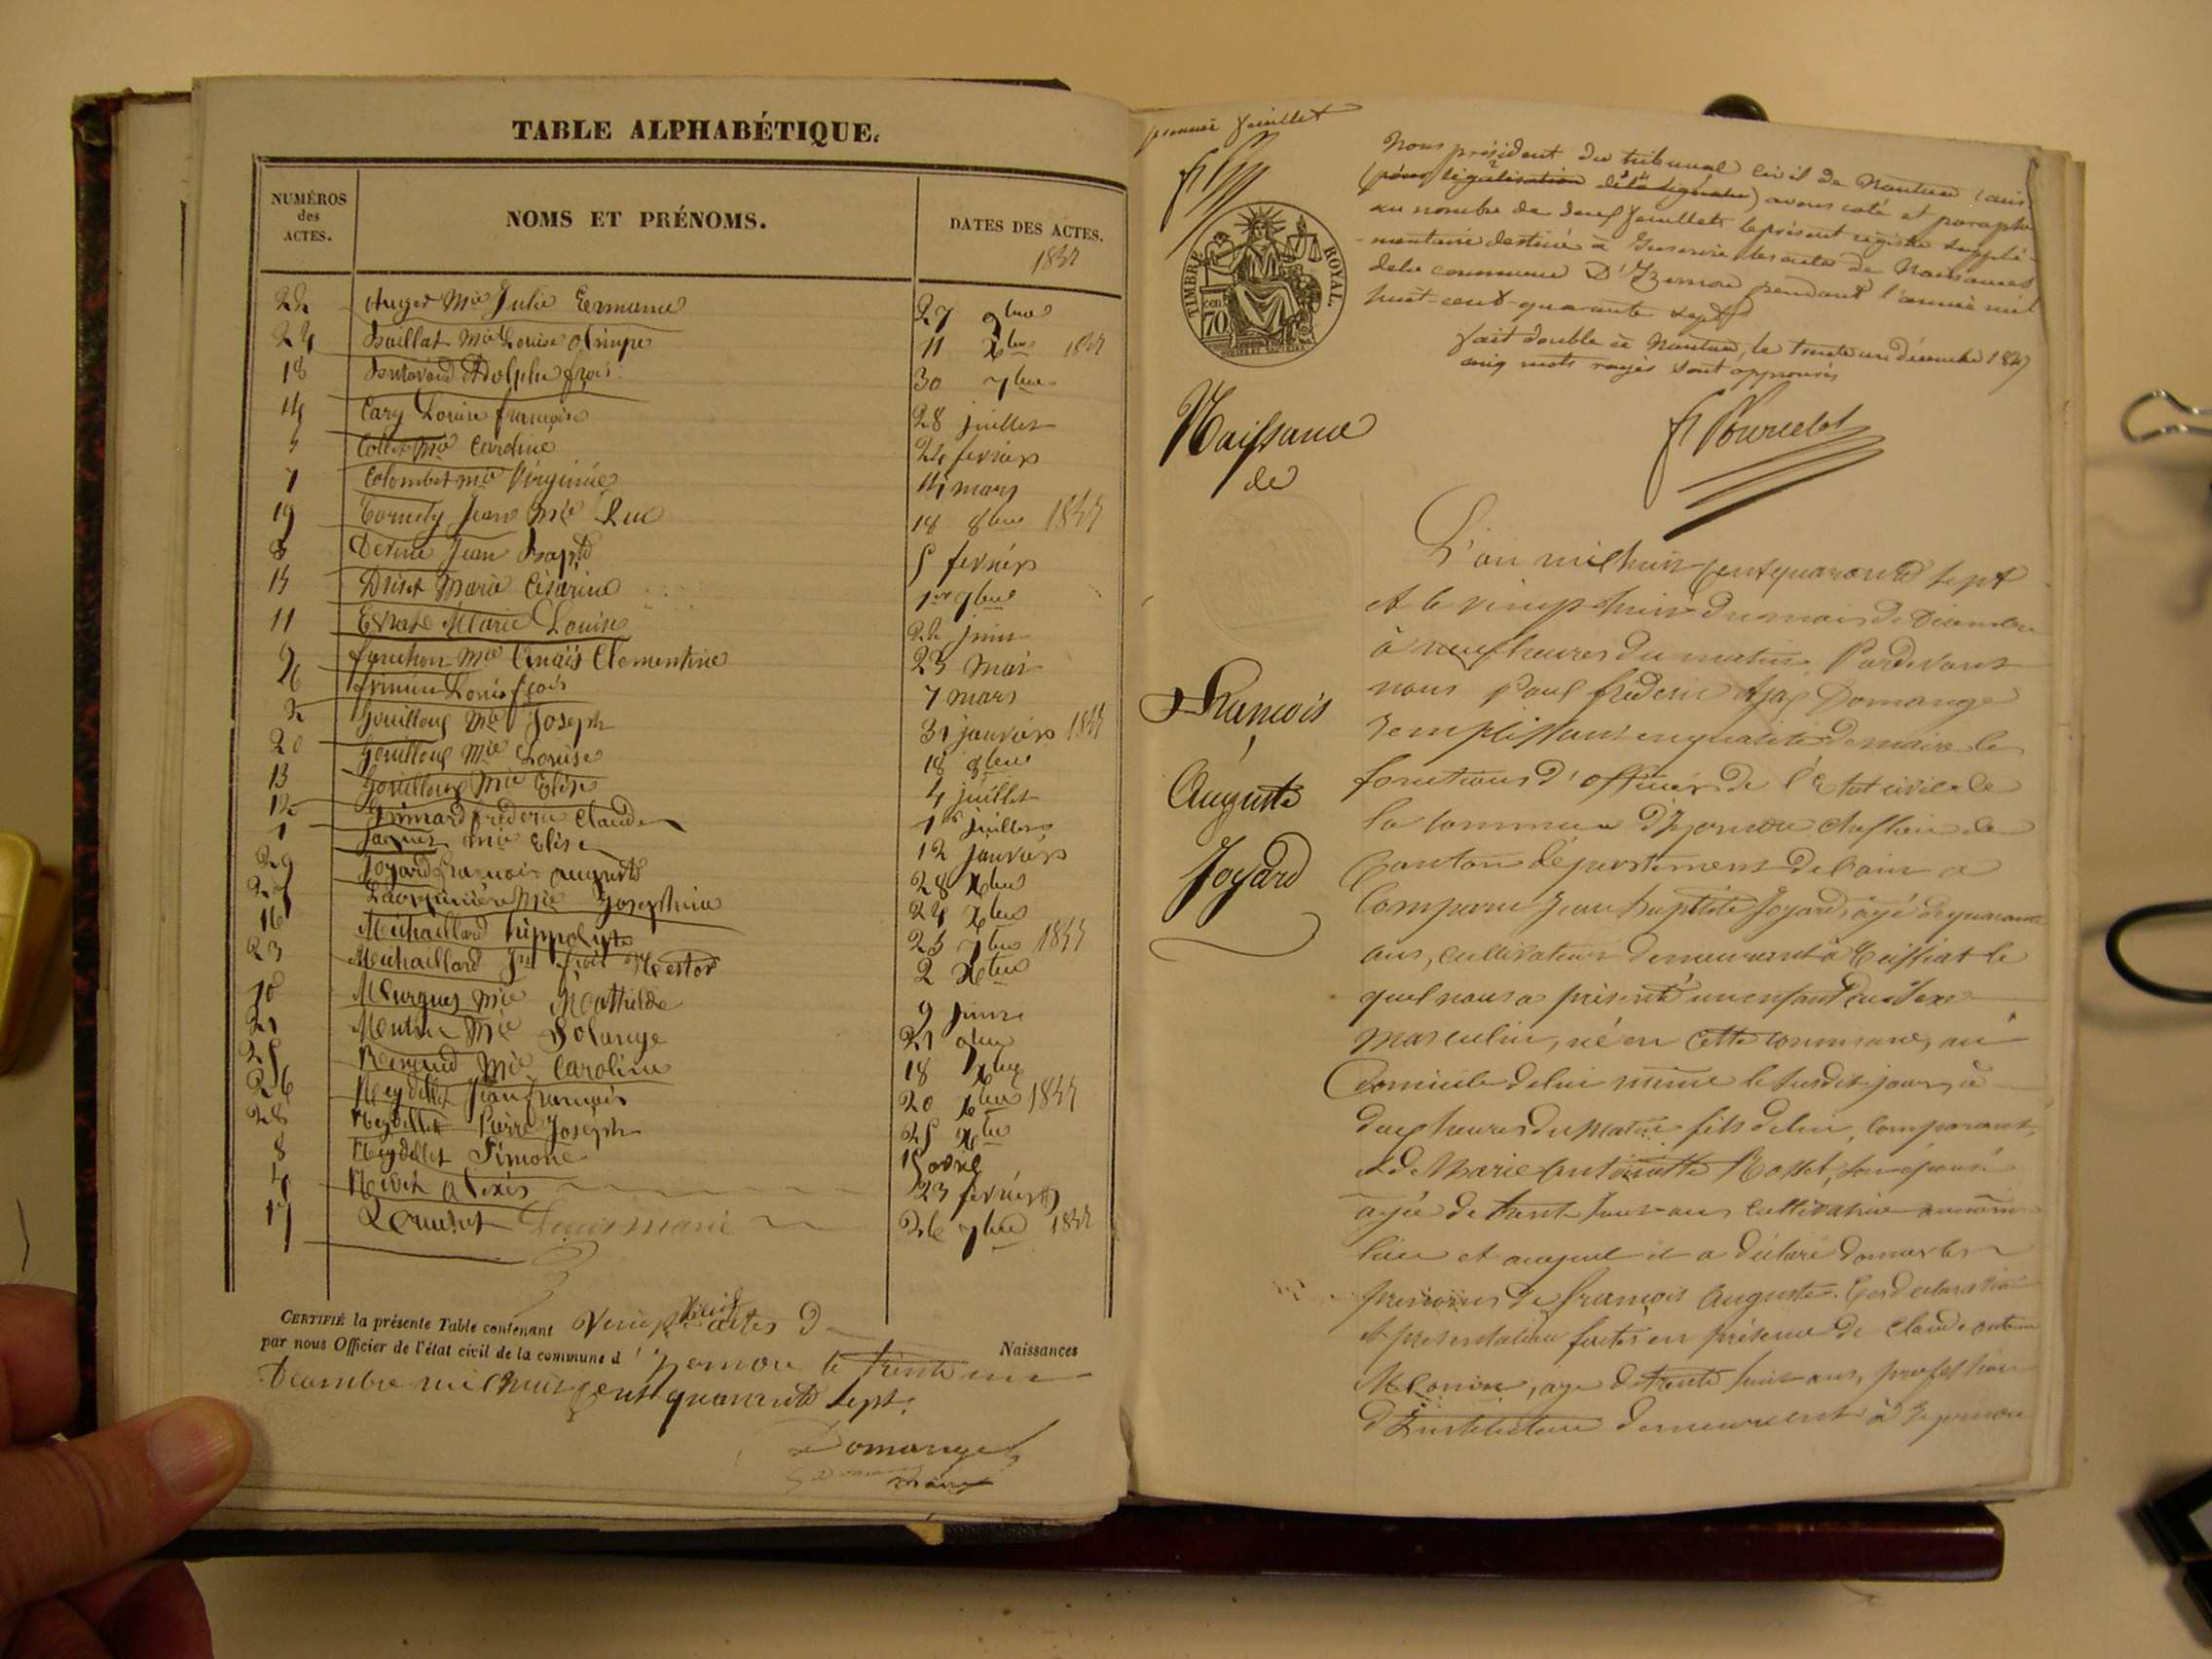 TABLE ALPHABÉTIQUE.
NUMÉROS
des
ACTES.
NOMS ET PRÉNOMS.
DATES DES ACTES.
1847
22 Auger Mie Julie Ermance 27 9bre
24 Baillat Mie Louise Olimpe 11 Xbre 1847
18 Adolphe frçois 30 7bre
14 Cary Louise françoise 28 juillet
5 Collet Mie Caroline 24 feviers
7 Colombet mie Virginie 14 mars
19 Cornety Jean Mie Luc 18 8bre 1847
3 Jean Bapte 5 feviers
15 Druet Marie Césarine 1er 7bre
11 Marie Louise 22 juin
9 Mie Anaïs Clementine 23 mai
6 Louis fçois 7 mars
2 Gouilloux Mie Joseph 31 janviers 1847
20 Gouilloux Mie Louise 18 8bre
13 Gouilloux Mie Elise 4 juillet
12 Grimard frederic Claude 1er juillet
1 Jaquet mie Elise 12 janviers
29 Joyard François auguste 28 Xbre
27 Mie Josephine 24 Xbre
16 Michaillard hippolyte 25 7bre 1847
23 Michaillard Jn frçois Nestor 2 Xbre
10 Mie Mathilde 9 juin
21 Mie Solange 21 9bre
25 Renaud Mie Caroline 18 Xbre
26 Reydellet Jean françois 20 Xbre 1847
28 Reydellet Pierre Joseph 25 Xbre
8 Reydellet Simone 15 avril
4 alexis 23 feviers
17 Louis marie 26 7bre 1847
CERTIFIÉ la présente Table contenant Vingt neuf actes de
Naissances
par nous Officier de l'état civil de la commune d'Izernore le trente un
Décembre mil huit cent quarante sept.
Domange
maire
premier feuillet
TIMBRE ROYAL.
70 cen
Nous président du tribunal civil de Nantua (ain)
(pour légalisation de la signature) avons coté et paraphé
au nombre de deux feuillets le présent registre supplé-
-mentaire destiné à Inscrire les actes de Naissances
de la commune D'Izernore pendant l'année mil
huit-cent-quarante sept
fait double à Nantua, le trente un décembre 1847
cinq mots rayés sont approuvés
Naissance
de
François
Auguste
Joyard
L'an mil huit cent quarante sept
et le vingt huit du mois de Décembre
à neuf heures du matin Pardevant
nous Paul frederic Ajax Domange
remplissant en qualité de maire les
fonctions d'officier de l'Etat civil de
la commune d'Izernore chef lieu de
Canton département de l'ain a
Comparu Jean baptiste Joyard, âgé de quarante
ans, cultivateur demeurant à Ceissiat le
quel nous a présenté un enfant du sexe
masculin, né en cette commune, au
Domicile de lui même le susdit jour, à
deux heures du matin fils de lui, Comparant,
et de Marie antoinette Rosset, son épouse
agée de trente huit ans cultivatrice au même
lieu et auquel il a déclaré donner les
prénoms de françois Auguste. Ces déclaration
et présentation faites en présence de Claude antoine
, age de trente huit ans, profession
d'instituteur demeurant à Izernore